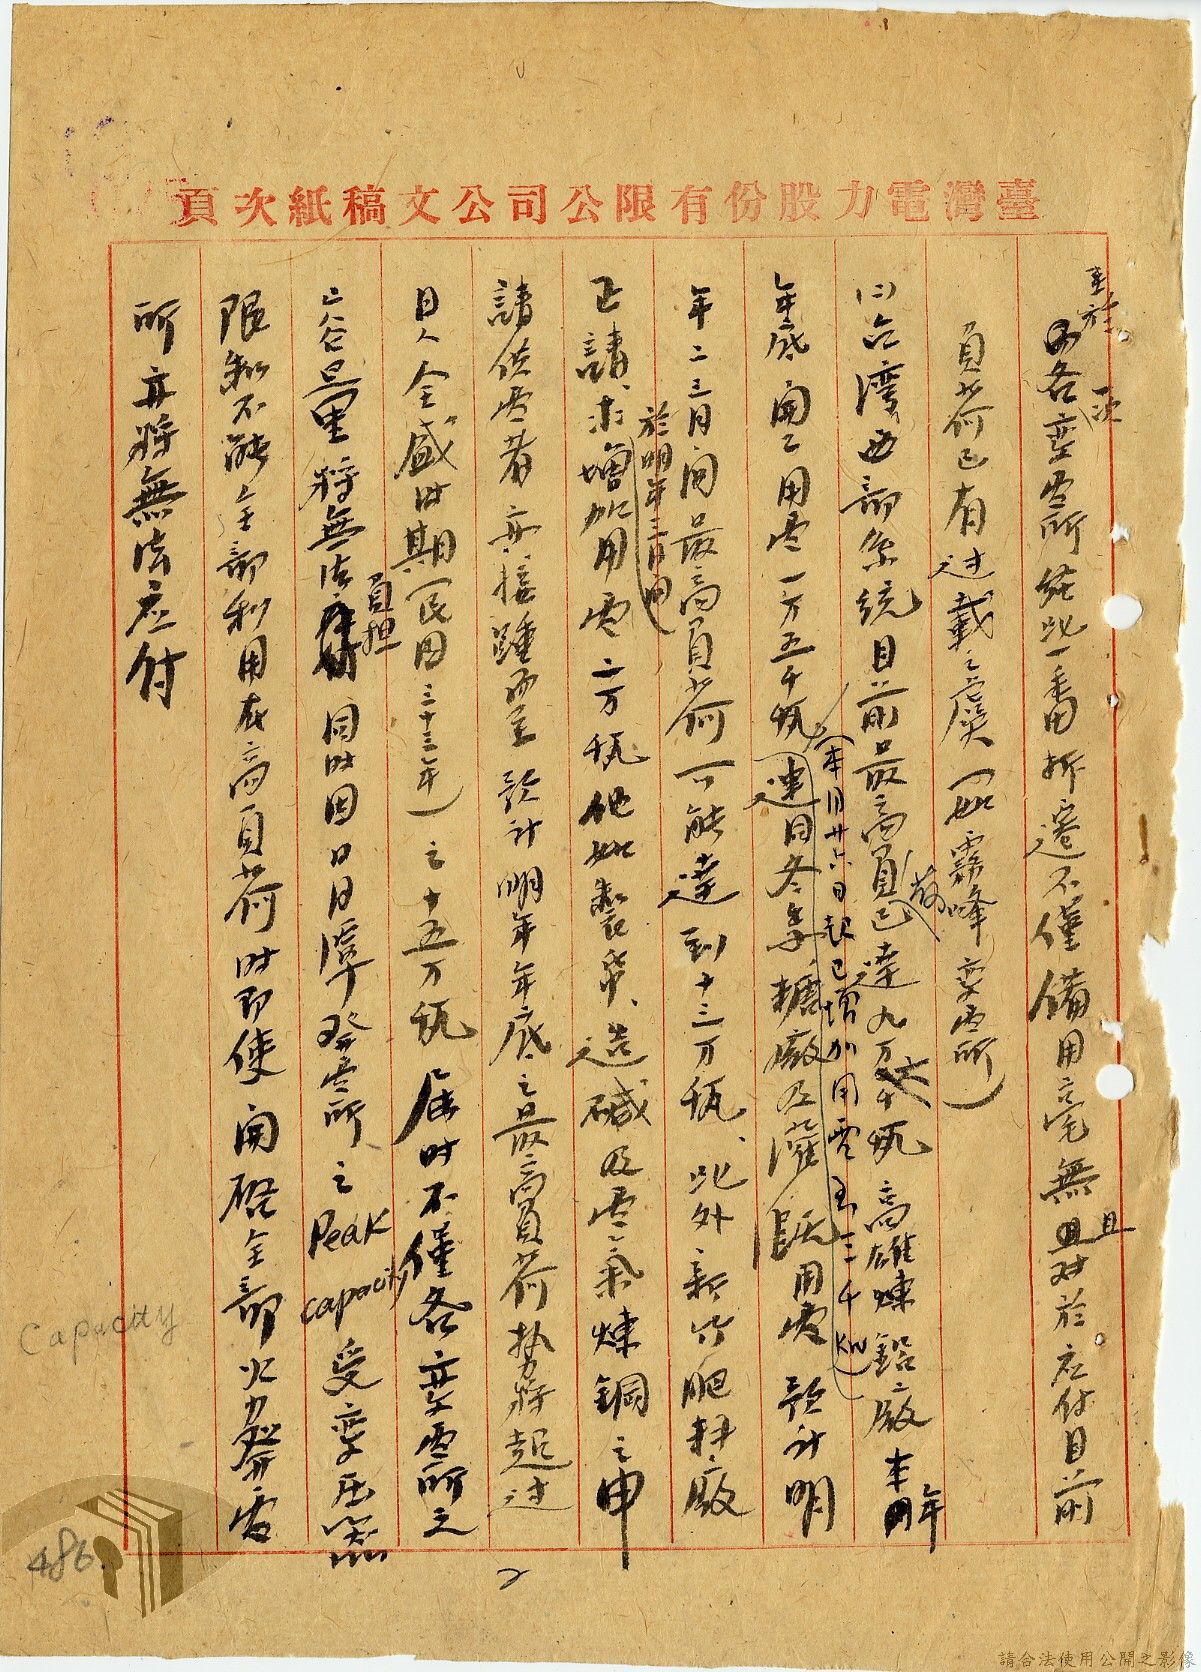 臺灣電力股份有限公司公文稿紙次頁
至於各變電所經此一番拆遷不僅備用毫無且對於應付目前
負荷已有过載之虞(如霧峰變電所)
(二)台湾西部系統目前最高負荷已達九万六千瓩高雄煉鋁廠本年
(本月廿六日起已增加用電至三千KW)
年底開工用電一万五千瓩連同冬季糖廠及灌溉用電預计明
年二三月间最高負荷可能達到十三万瓩、此外新竹肥料廠
於明年三月間
正請求增加用電二万瓩他如製鋁、造碱及電氣煉銅之申
請供電者亦接踵而至預计明年年底之最高負荷勢將超过
日人全盛时期(民国三十三年)之十五万瓩届时不僅各變電所之
容量將無法負担同时因日月潭發電所之Peak capacity受變压器
限制不能全部利用在高負荷时即使開啓全部火力發電
所亦將無法应付
Capacity
2
486
請合法使用公開之影像